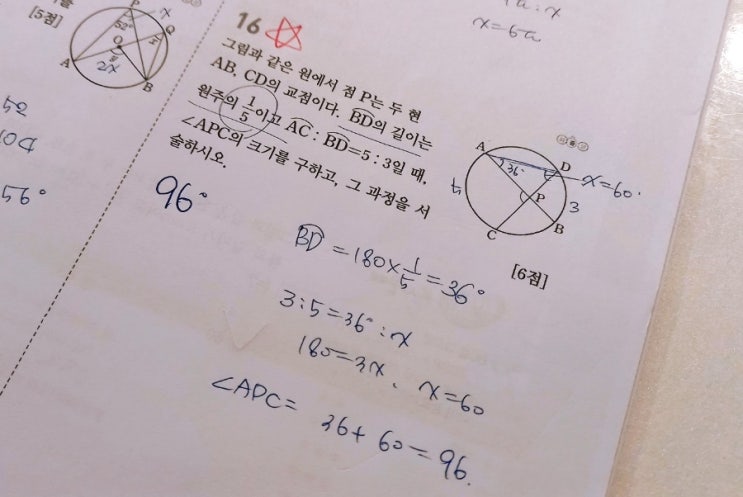 [5점]
P
x
52°
Q
O
A
2x
B
56°
x=6a
16
그림과 같은 원에서 점 P는 두 현
AB, CD의 교점이다. BD의 길이는
원주의 1/5이고 AC : BD=5 : 3일 때,
∠APC의 크기를 구하고, 그 과정을 서
술하시오.
96°
A
36°
D
x=60°
P
3
B
C
[6점]
BD = 180×1/5=36°
3:5=36°:x
180=3x. x=60
∠APC=
36+60=96.